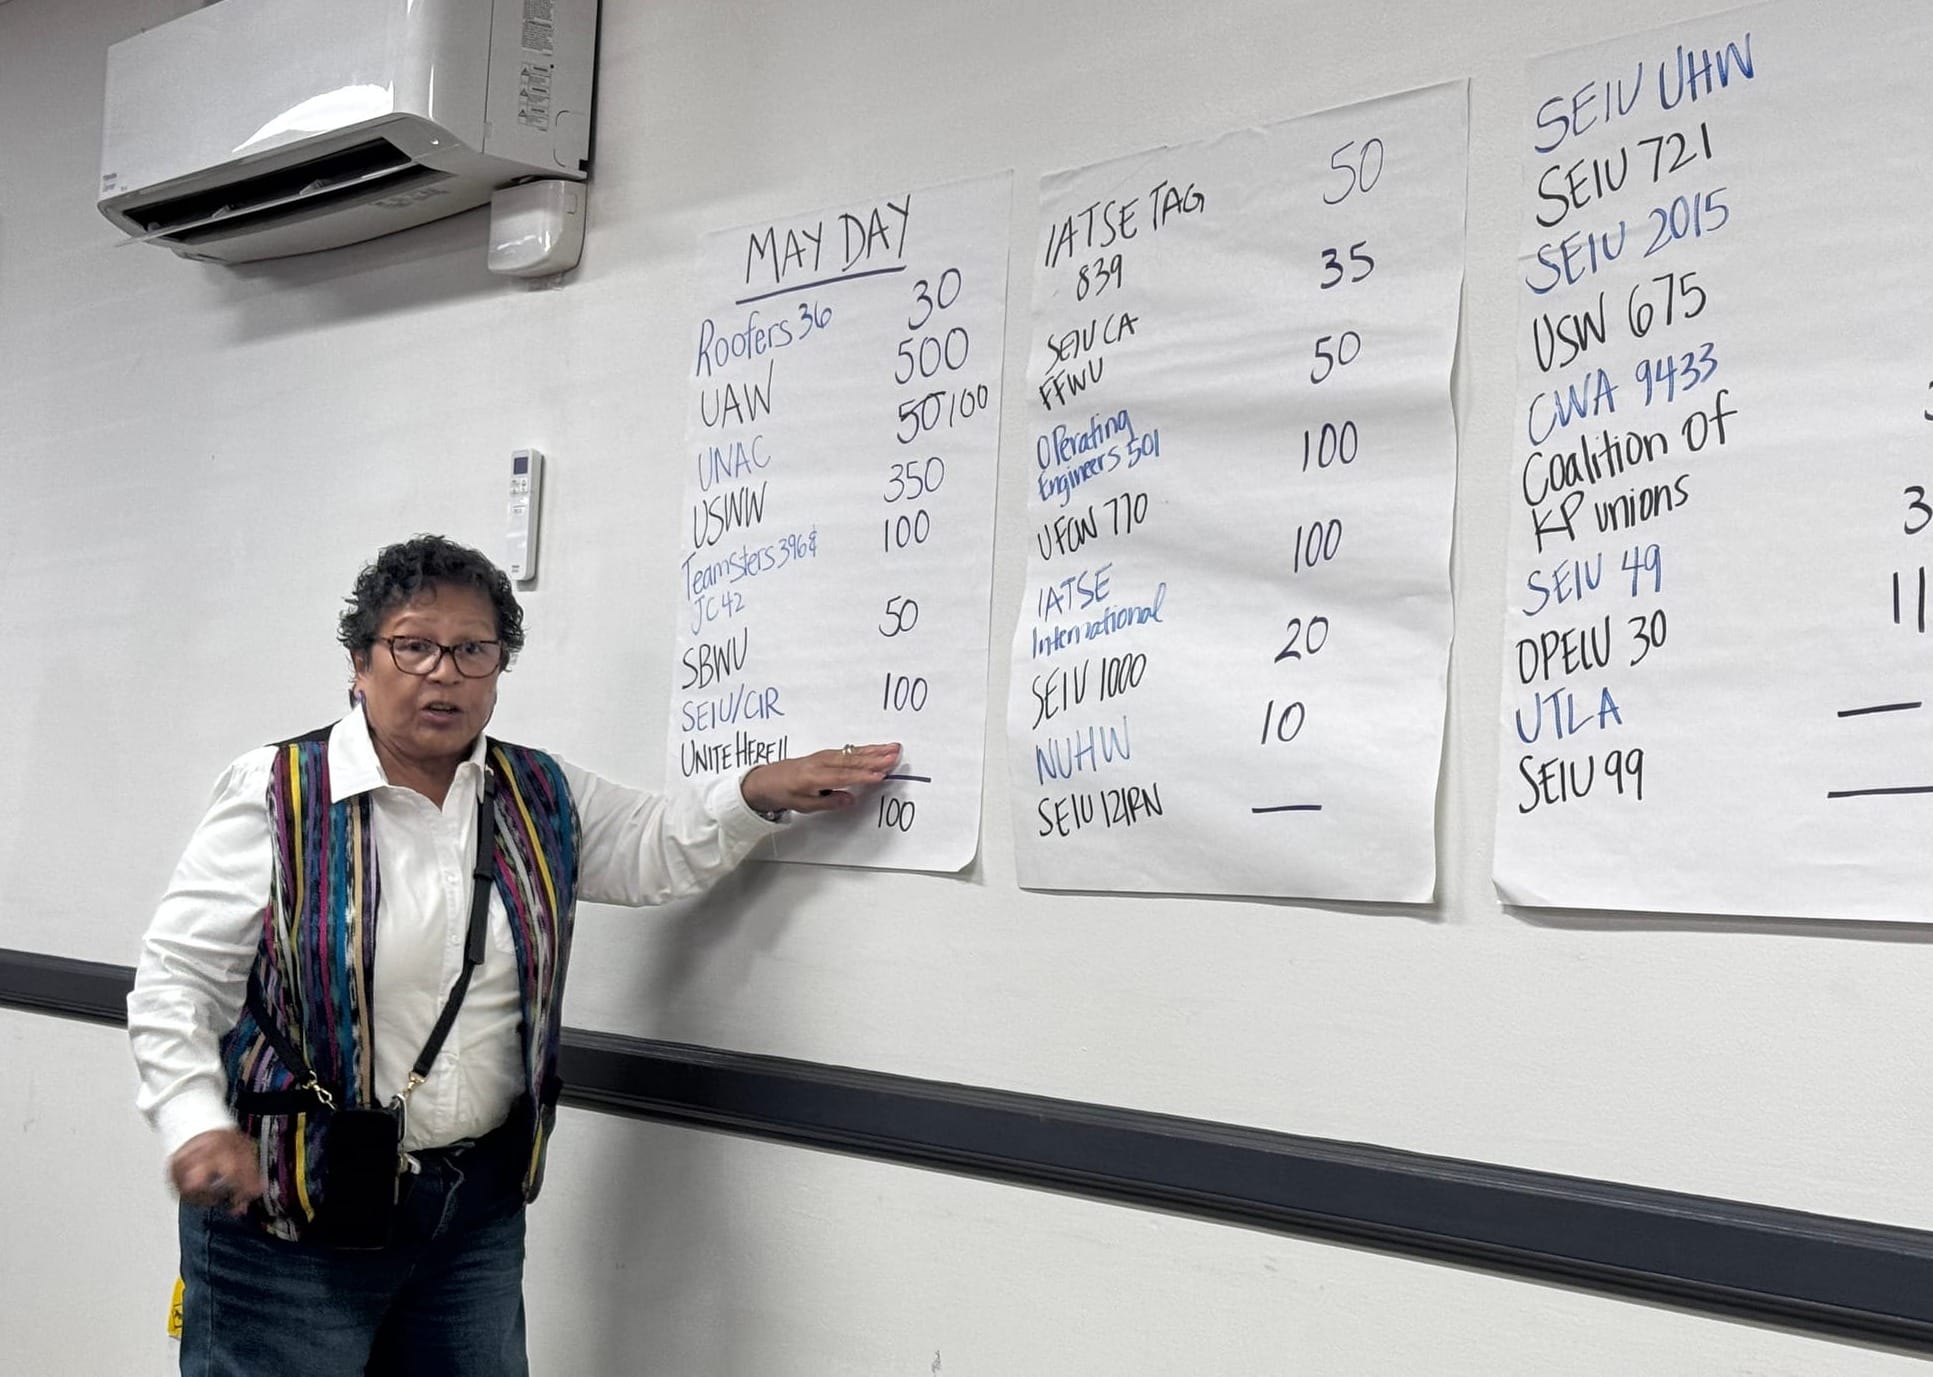 MAY DAY
Roofers 36 30
UAW 500
UNAC 50/100
USWW 350
Teamsters 396 & 100
JC 42
SBWU 50
SEIU/CIR 100
UNITE HERE 11 —
100
IATSE TAG 50
839
SEIU CA 35
FFWU
Operating 50
Engineers 501
UFCW 770 100
IATSE 100
International
SEIU 1000 20
NUHW 10
SEIU 121RN —
SEIU UHW
SEIU 721
SEIU 2015
USW 675
CWA 9433
Coalition of
KP unions
SEIU 49
OPEIU 30
UTLA —
SEIU 99 —